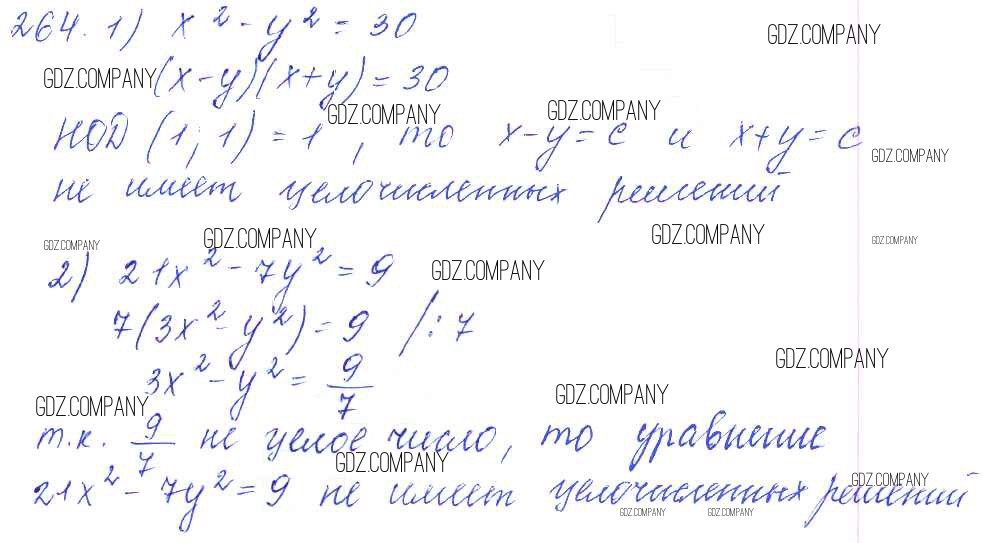 264. 1) x² - y² = 30
GDZ.COMPANY
GDZ.COMPANY (x-y)(x+y) = 30
GDZ.COMPANY GDZ.COMPANY
НОД (1; 1) = 1, то x-y=c и x+y=c
GDZ.COMPANY
не имеет целочисленных решений
GDZ.COMPANY GDZ.COMPANY GDZ.COMPANY GDZ.COMPANY
2) 21x² - 7y² = 9
GDZ.COMPANY
7(3x² - y²) = 9 /:7
GDZ.COMPANY
3x² - y² = 9/7
GDZ.COMPANY GDZ.COMPANY
т.к. 9/7 не целое число, то уравнение
GDZ.COMPANY
21x² - 7y² = 9 не имеет целочисленных решений
GDZ.COMPANY
GDZ.COMPANY GDZ.COMPANY